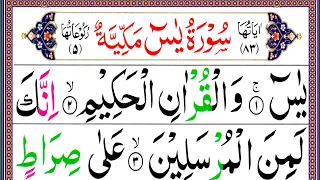 اٰیَاتُهَا (۸۳) سُوْرَةُ یٰسٓ مَكِّیَّةٌ رُكُوْعَاتُهَا (۵)
یٰسٓ ۚ﴿۱﴾ وَالْقُرْاٰنِ الْحَكِیْمِ ۙ﴿۲﴾ اِنَّكَ
لَمِنَ الْمُرْسَلِیْنَ ۙ﴿۳﴾ عَلٰی صِرَاطٍ